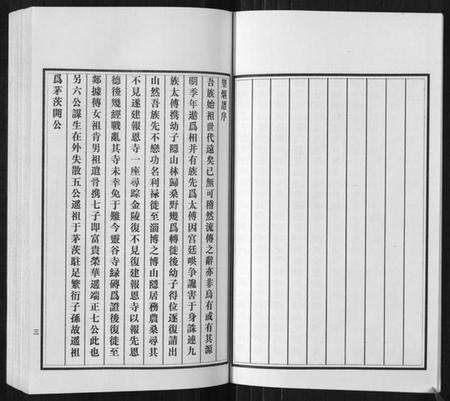 譜序
吾族始祖世代遠矣已無可稽然流傳之辭亦非烏有或有其源
明季年邀爲相并有族先爲太傅因宮廷哄爭讒害于身誅連九
族太傅携幼子隱山林歸桑野幾爲轉徙後幼子得位逐復請出
山然吾族先不戀功名利祿徙至淄博之博山隱居務農桑尋其
不見遂建報恩寺一座尋踪金陵復不見復建報恩寺以報先恩
德後幾經戰亂其寺未幸免于難今靈谷寺録磚爲證後復徙至
鄰據傳女祖肯男祖遺骨携七子即富貴榮華遥端正七公此也
另六公謀生在外失散五公遥祖于茅茨駐足繁衍子孫故遥祖
爲茅茨開公
三